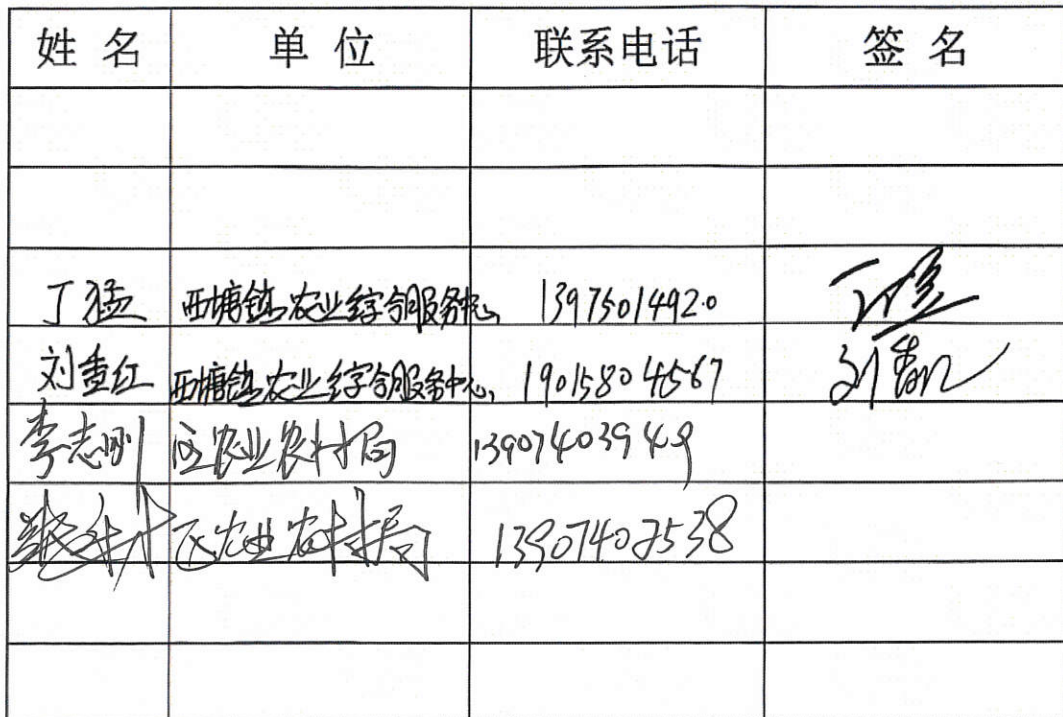 姓名 单位 联系电话 签名
丁猛 西塘镇农业综合服务中心 13975014920 丁猛
刘重红 西塘镇农业综合服务中心 19015804567
李志刚 区农业农村局 13907403949
区农业农村局 13907402538